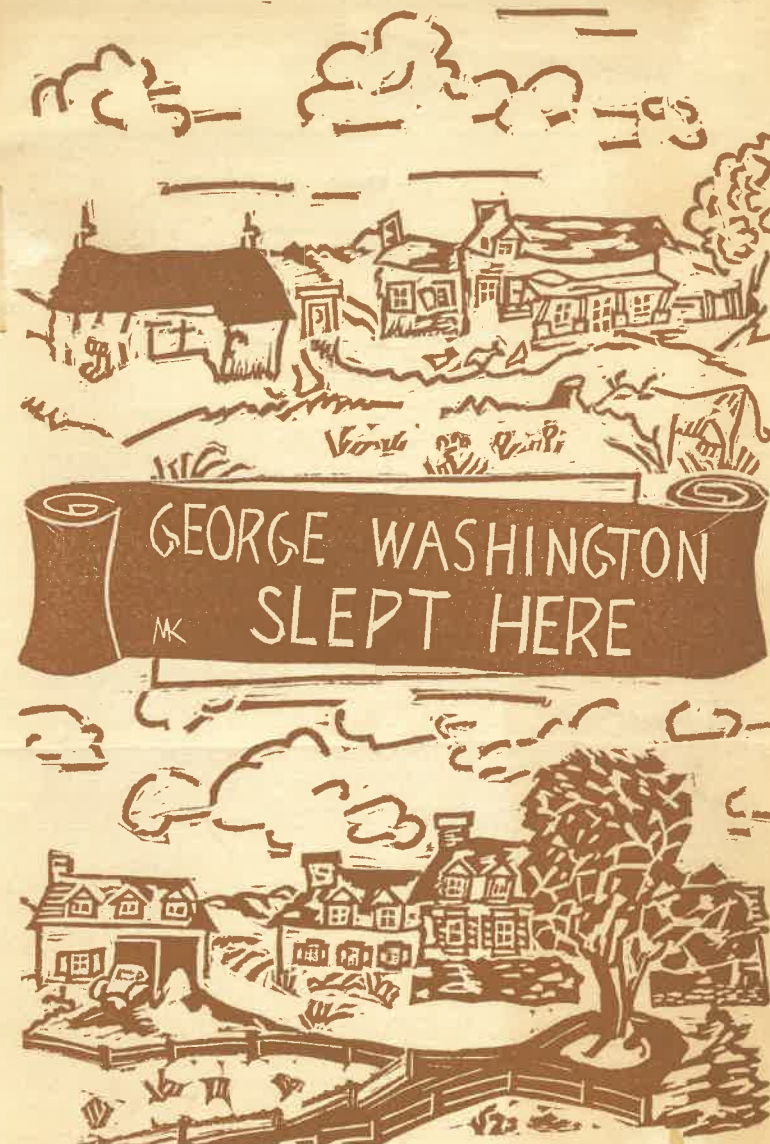 GEORGE WASHINGTON
SLEPT HERE
MK